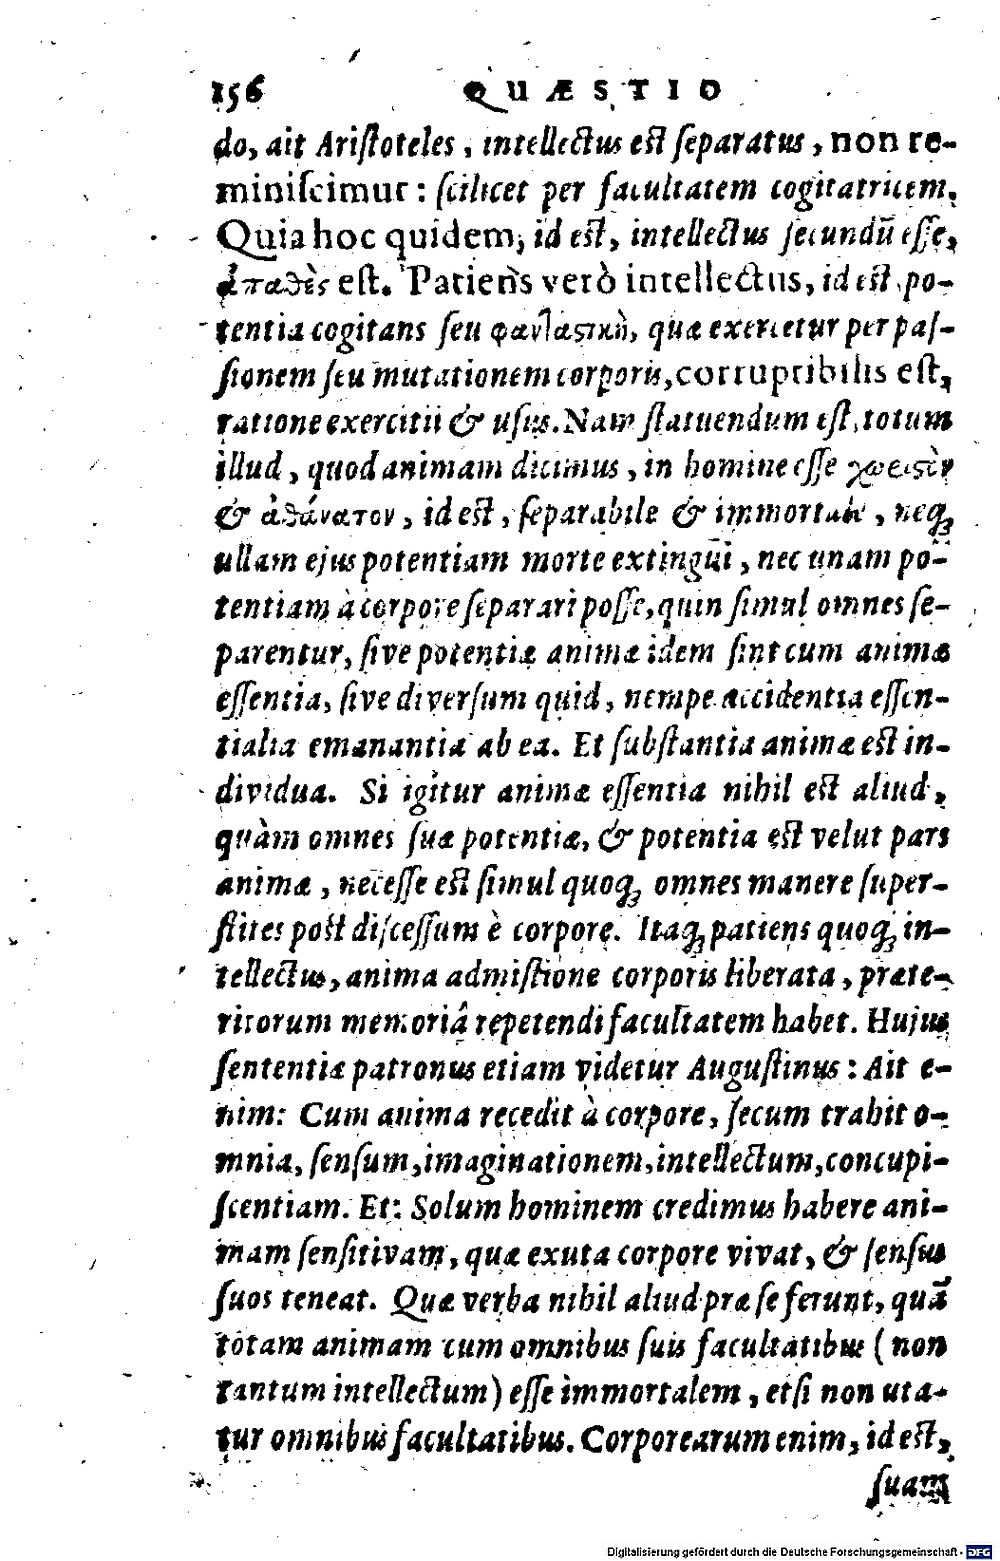 156 QUÆSTIO
do, ait Ariſtoteles, intellectus eſt ſeparatus, non re-
miniſcimur: ſcilicet per facultatem cogitatricem.
Quia hoc quidem, id eſt, intellectus ſecundũ eſſe,
ἀπαθὲς eſt. Patiens verò intellectus, id eſt, po-
tentia cogitans ſeu φανταϛικὴ, quæ exercetur per paſ-
ſionem ſeu mutationem corporis, corruptibilis eſt,
ratione exercitii & uſus. Nam ſtatuendum eſt, totum
illud, quod animam dicimus, in homine eſſe χωριϛὸν
& ἀθάνατον, id eſt, ſeparabile & immortale, neq;
ullam ejus potentiam morte extingui, nec unam po-
tentiam à corpore ſeparari poſſe, quin ſimul omnes ſe-
parentur, ſive potentiæ animæ idem ſint cum animæ
eſſentia, ſive diverſum quid, nempe accidentia eſſen-
tialia emanantia ab ea. Et ſubſtantia animæ eſt in-
dividua. Si igitur animæ eſſentia nihil eſt aliud,
quàm omnes ſuæ potentiæ, & potentia eſt velut pars
animæ, neceſſe eſt ſimul quoq; omnes manere ſuper-
ſtites poſt diſceſſum è corpore. Itaq; patiens quoq; in-
tellectus, anima admiſtione corporis liberata, præte-
ritorum memoriâ repetendi facultatem habet. Hujus
ſententiæ patronus etiam videtur Auguſtinus: Ait e-
nim: Cum anima recedit à corpore, ſecum trahit o-
mnia, ſenſum, imaginationem, intellectum, concupi-
ſcentiam. Et: Solum hominem credimus habere ani-
mam ſenſitivam, quæ exuta corpore vivat, & ſenſus
ſuos teneat. Quæ verba nihil aliud præ ſe ferunt, quã
totam animam cum omnibus ſuis facultatibus (non
tantum intellectum) eſſe immortalem, etſi non uta-
tur omnibus facultatibus. Corporearum enim, id eſt,
ſuam
Digitalisierung gefördert durch die Deutsche Forschungsgemeinschaft - DFG